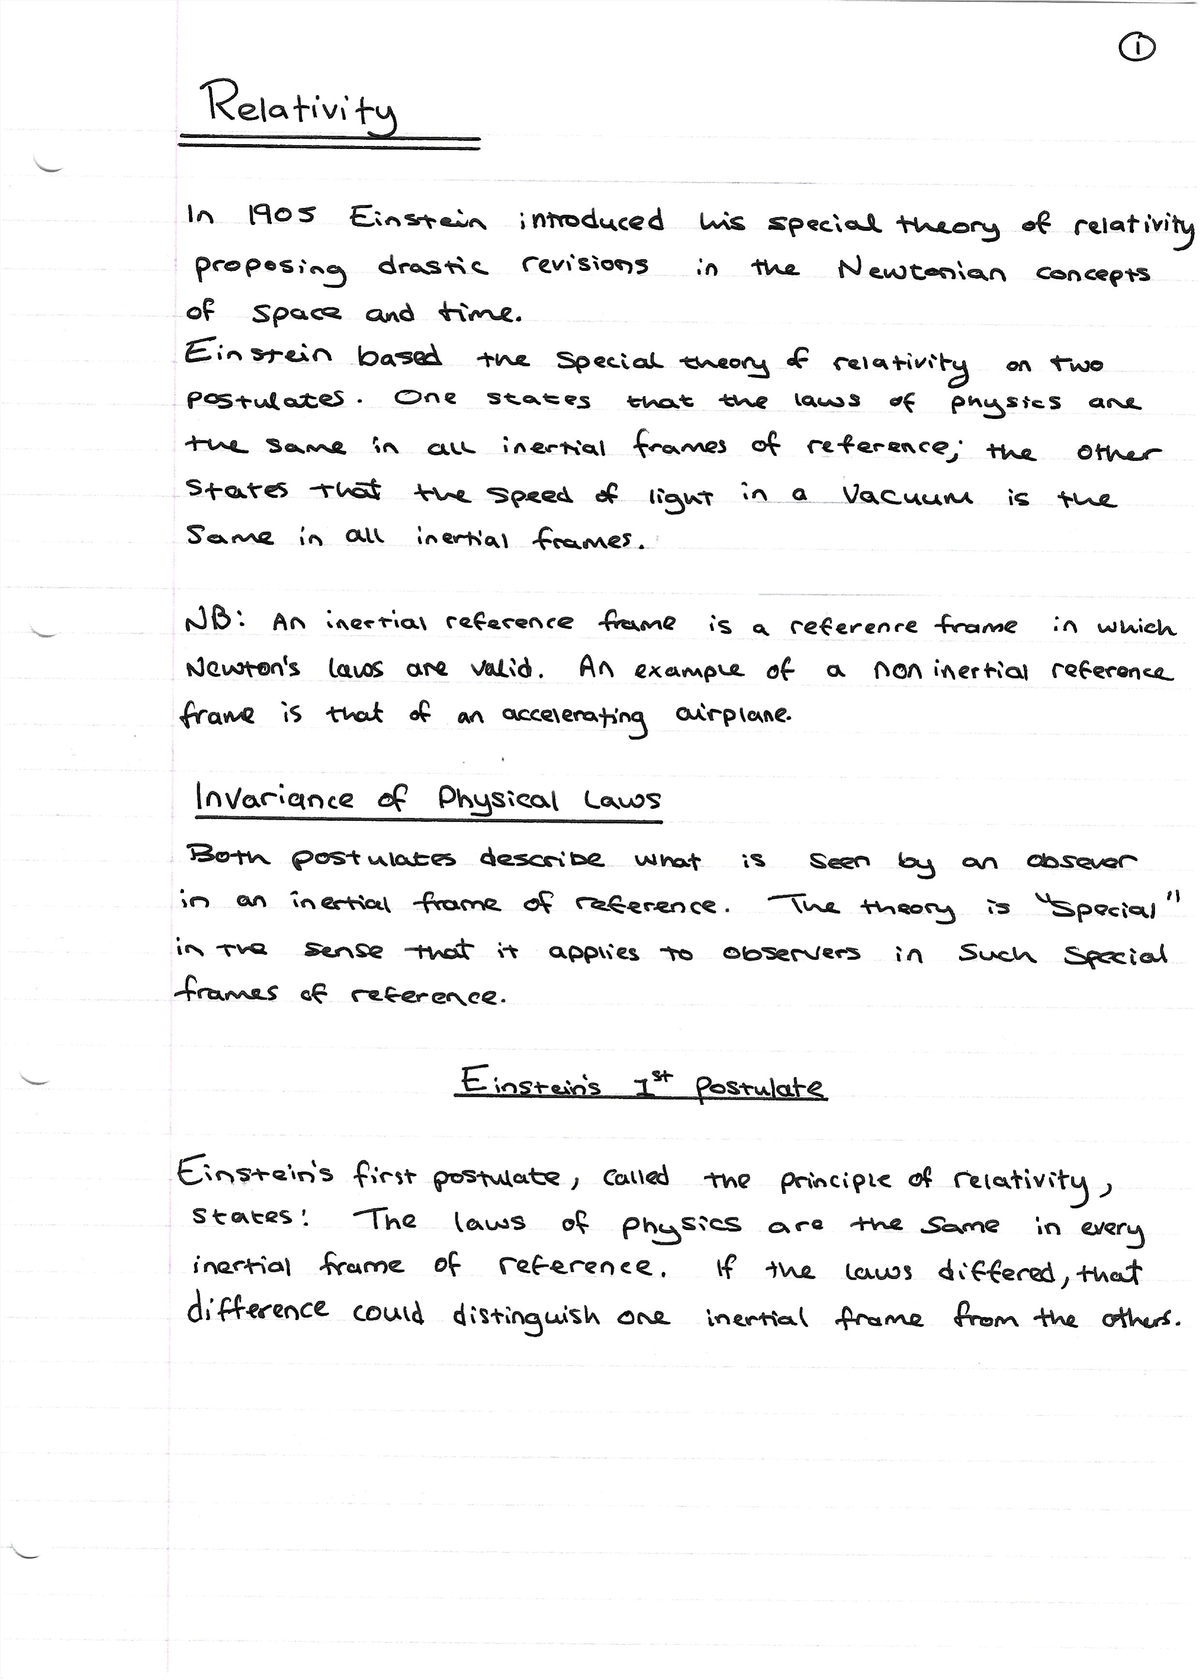 1
Relativity
In 1905 Einstein introduced his special theory of relativity
proposing drastic revisions in the Newtonian concepts
of space and time.
Einstein based the special theory of relativity on two
postulates. One states that the laws of physics are
the same in all inertial frames of reference; the other
states that the speed of light in a vacuum is the
same in all inertial frames.
NB: An inertial reference frame is a reference frame in which
Newton's laws are valid. An example of a non inertial reference
frame is that of an accelerating airplane.
Invariance of Physical Laws
Both postulates describe what is seen by an obsever
in an inertial frame of reference. The theory is "special"
in the sense that it applies to observers in such special
frames of reference.
Einstein's 1st Postulate
Einstein's first postulate, called the principle of relativity,
states: The laws of physics are the same in every
inertial frame of reference. If the laws differed, that
difference could distinguish one inertial frame from the others.